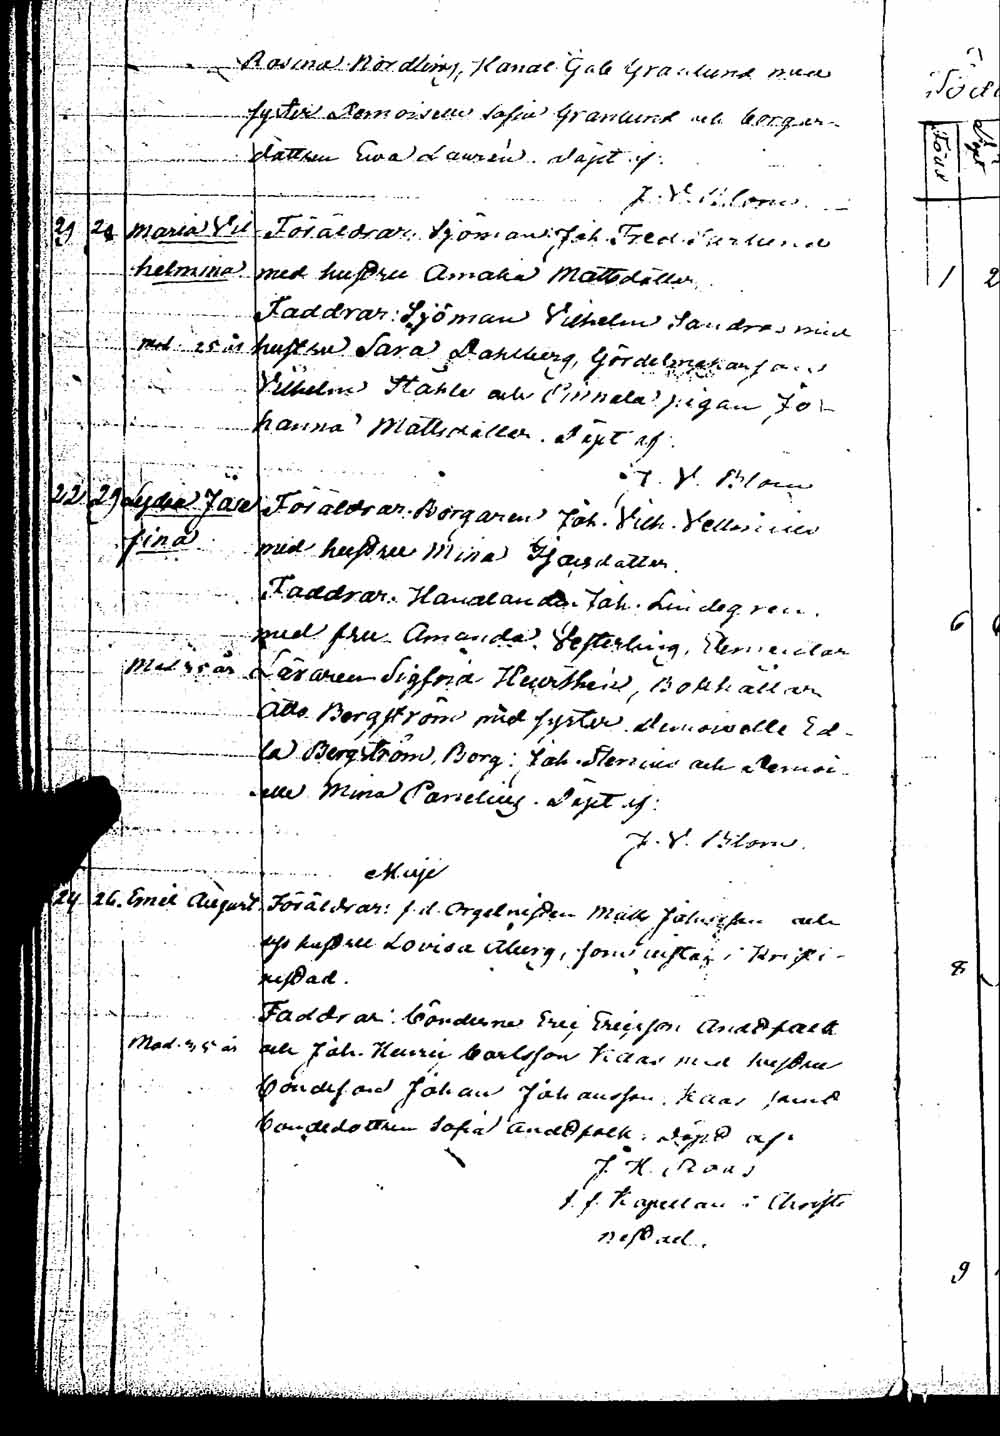 Rosina Nördling, Handl Gab Granlund med
syster Demoiselle Sofia Granlund och borgar-
dottren Ewa Laurén. Döpt af:
J. V. Blom.
29 Maria Vil Föräldrar: Sjöman Joh. Fred.
helmina med hustru Amalia Mattsdotter
Faddrar: Sjöman Vilhelm Sandros med
Mod. 25 år hustru Sara Dahlberg, Gördelmakar
Vilhelm Ståhle och pigan Jo-
hanna Mattsdotter. Döpt af:
J. V. Blom
22 29 Lydia Jose Föräldrar: Borgaren Joh. Vilh.
fina med hustru Mina
Faddrar: Handlanden Joh. Lindegren
med fru Amanda Vesterling, Elementar
Mod. 35 år Läraren Sigfrid, Bokhållar
Otto Bergström med syster Demoiselle Ed-
la Bergström, Borg: Joh. och Demoi-
elle Mina. Döpt af:
J. V. Blom.
Maje
24 26. Emil August Föräldrar: f.d. Orgelnisten Matts Johansson och
hustru Lovisa Åberg, som vistas i Kristi-
nestad.
Faddrar: Bönderne Eric Ericsson Andfolk
Mod. 35 år och Joh. Henric Carlsson Kaas med hustru
Bondeson Johan Johansson Kaas samt
Bondedottren Sofia Andfolk. Döpt af:
J. H. Roos
t. f. Kapellan i Christi
nestad.
Född
Född Döpt
1 2
6
8
9